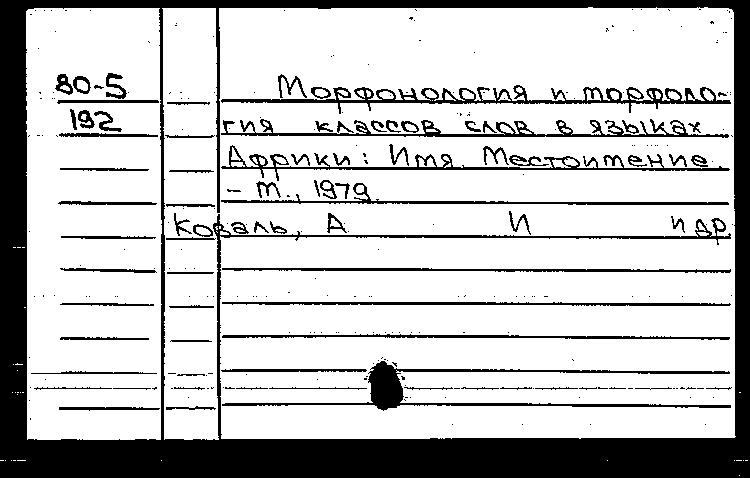 80-5 Морфонология и морфоло-
192 гия классов слов в языках
Африки: Имя. Местоимение.
- М., 1979.
Коваль, А И и др